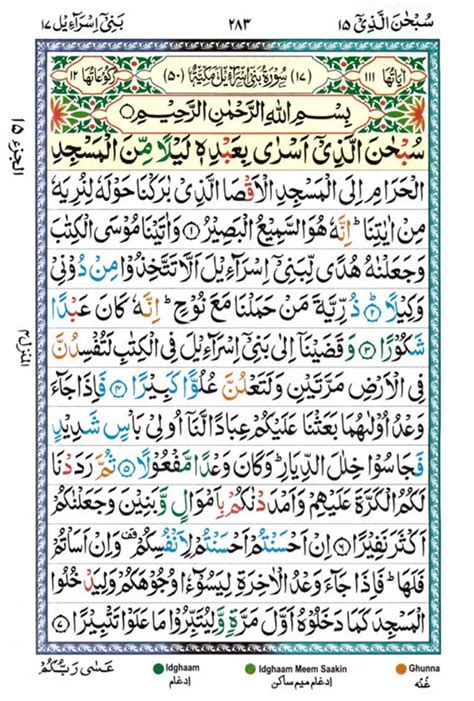 سُبْحٰنَ الَّذِيْۤ ١٥
٢٨٣
بَنِيْۤ اِسْرَآءِيْل ١٧
اٰيَاتُهَا ١١١
(١٧) سُوْرَةُ بَنِيْۤ اِسْرَآءِيْلَ مَكِّيَّةٌ (٥٠)
رُكُوْعَاتُهَا ١٢
بِسْمِ اللّٰهِ الرَّحْمٰنِ الرَّحِيْمِ
سُبْحٰنَ الَّذِيْۤ اَسْرٰى بِعَبْدِهٖ لَيْلًا مِّنَ الْمَسْجِدِ
الْحَرَامِ اِلَى الْمَسْجِدِ الْاَقْصَا الَّذِيْ بٰرَكْنَا حَوْلَهٗ لِنُرِيَهٗ
مِنْ اٰيٰتِنَا ؕ اِنَّهٗ هُوَ السَّمِيْعُ الْبَصِيْرُ ۝١ وَاٰتَيْنَا مُوْسَى الْكِتٰبَ
وَجَعَلْنٰهُ هُدًى لِّبَنِيْۤ اِسْرَآءِيْلَ اَلَّا تَتَّخِذُوْا مِنْ دُوْنِيْ
وَكِيْلًا ۝٢ ذُرِّيَّةَ مَنْ حَمَلْنَا مَعَ نُوْحٍ ؕ اِنَّهٗ كَانَ عَبْدًا
شَكُوْرًا ۝٣ وَقَضَيْنَاۤ اِلٰى بَنِيْۤ اِسْرَآءِيْلَ فِي الْكِتٰبِ لَتُفْسِدُنَّ
فِي الْاَرْضِ مَرَّتَيْنِ وَلَتَعْلُنَّ عُلُوًّا كَبِيْرًا ۝٤ فَاِذَا جَآءَ
وَعْدُ اُوْلٰىهُمَا بَعَثْنَا عَلَيْكُمْ عِبَادًا لَّنَاۤ اُولِيْ بَاْسٍ شَدِيْدٍ
فَجَاسُوْا خِلٰلَ الدِّيَارِ ؕ وَكَانَ وَعْدًا مَّفْعُوْلًا ۝٥ ثُمَّ رَدَدْنَا
لَكُمُ الْكَرَّةَ عَلَيْهِمْ وَاَمْدَدْنٰكُمْ بِاَمْوَالٍ وَّبَنِيْنَ وَجَعَلْنٰكُمْ
اَكْثَرَ نَفِيْرًا ۝٦ اِنْ اَحْسَنْتُمْ اَحْسَنْتُمْ لِاَنْفُسِكُمْ ۫ وَاِنْ اَسَاْتُمْ
فَلَهَا ؕ فَاِذَا جَآءَ وَعْدُ الْاٰخِرَةِ لِيَسُوْٓءٗا وُجُوْهَكُمْ وَلِيَدْخُلُوا
الْمَسْجِدَ كَمَا دَخَلُوْهُ اَوَّلَ مَرَّةٍ وَّلِيُتَبِّرُوْا مَا عَلَوْا تَتْبِيْرًا ۝٧
عَسٰى رَبُّكُمْ
الجزء ١٥
المنزل ٤
Idghaam
اِدغام
Idghaam Meem Saakin
اِدغام میم ساکن
Ghunna
غُنّه